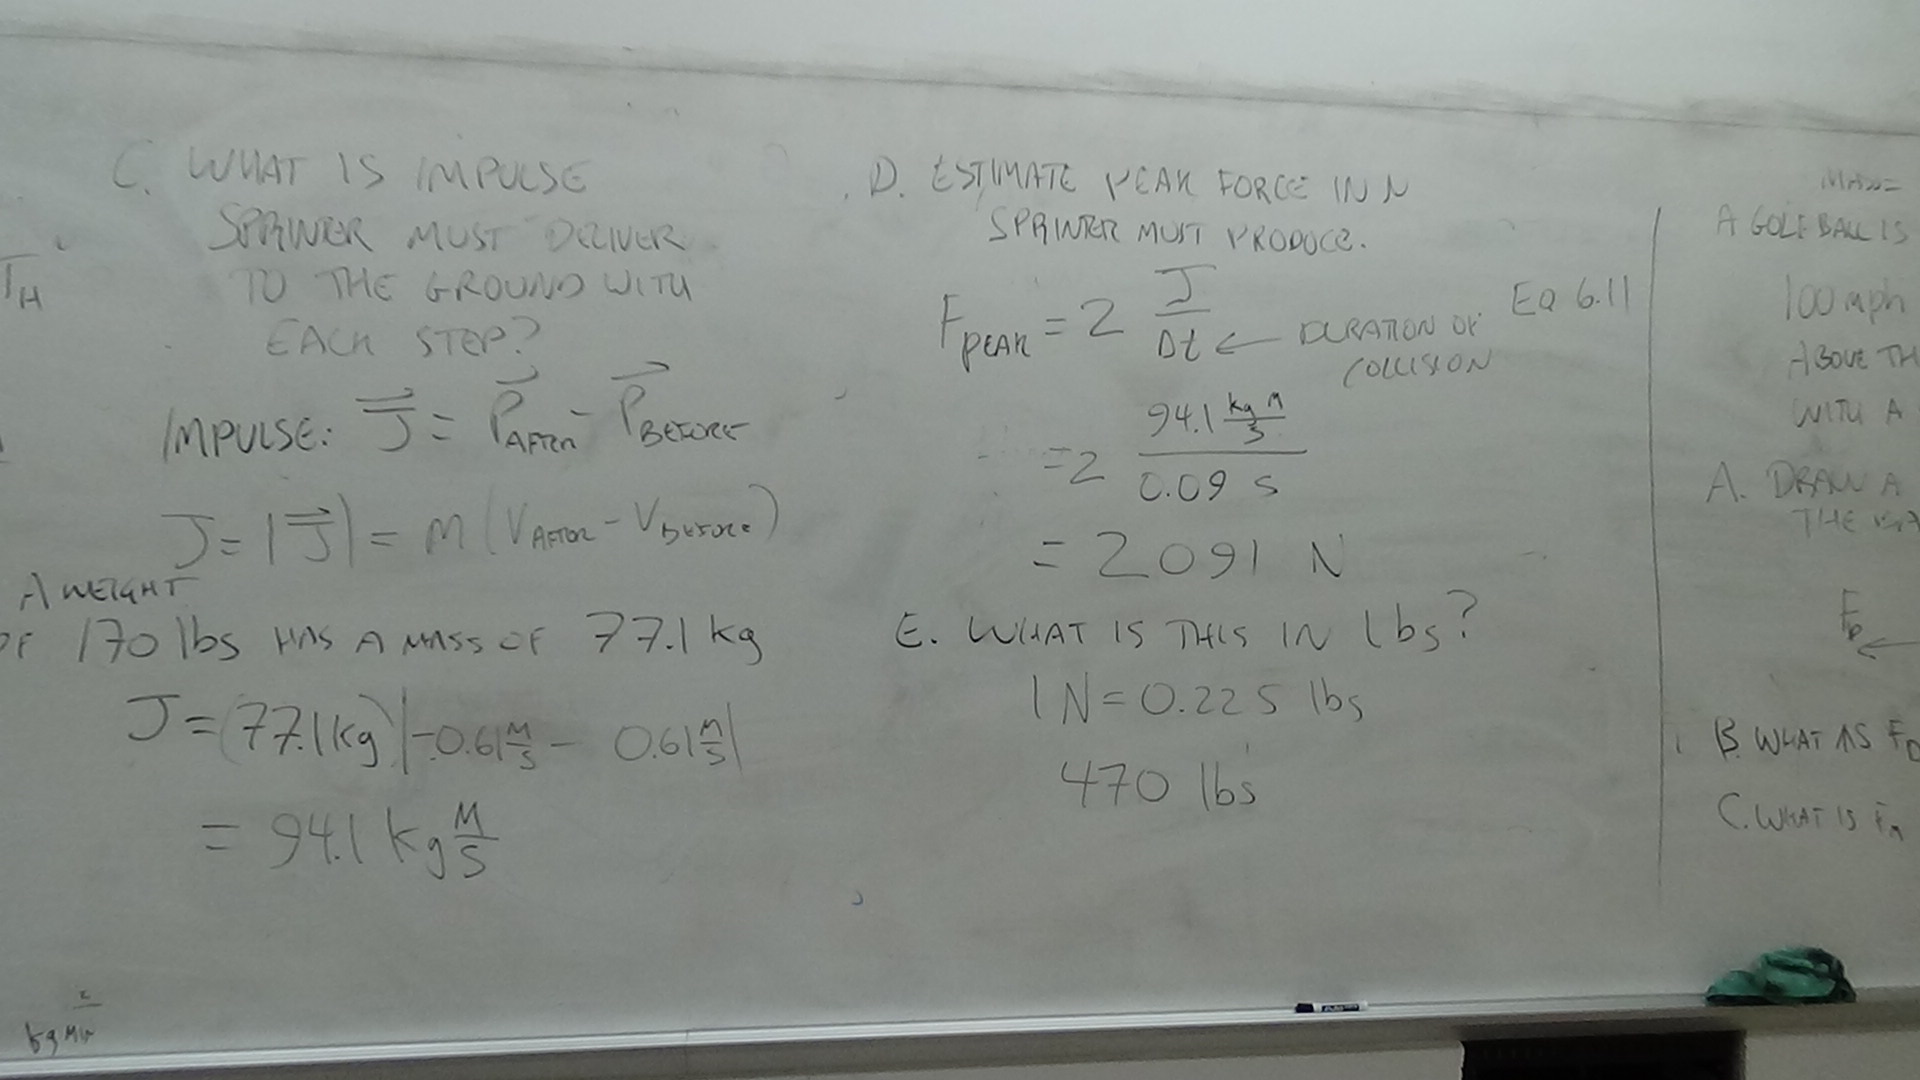 TH
C. WHAT IS IMPULSE
SPRINTER MUST DELIVER
TO THE GROUND WITH
EACH STEP?
IMPULSE: J = P AFTER - P BEFORE
J = |J| = M (V AFTER - V BEFORE)
A WEIGHT
OF 170 lbs HAS A MASS OF 77.1 kg
J = (77.1 kg) |-0.61 M/S - 0.61 M/S|
= 94.1 kg M/S
D. ESTIMATE PEAK FORCE IN N
SPRINTER MUST PRODUCE.
F PEAK = 2 J/Δt ← DURATION OF COLLISION Eq 6.11
= 2 94.1 kg M/S / 0.09 s
= 2091 N
E. WHAT IS THIS IN lbs?
1 N = 0.225 lbs
470 lbs
MASS=
A GOLF BALL IS
100 mph
ABOVE TH
WITH A
A. DRAW A
THE
F
B. WHAT IS FD
C. WHAT IS F